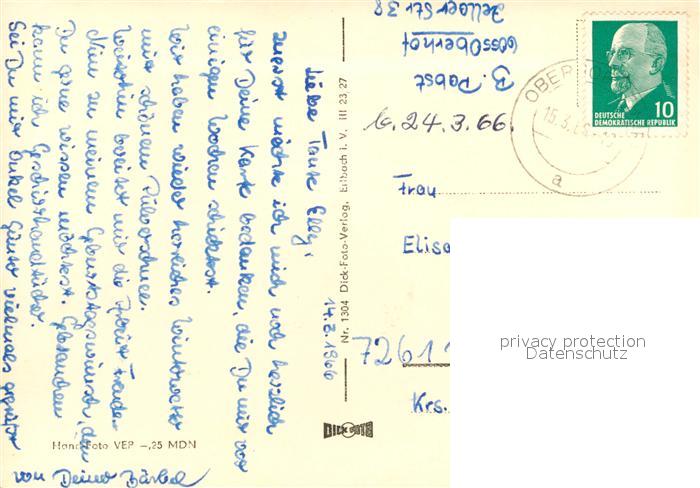 Liebe Tante Elly,
zuerst möchte ich mich noch herzlich
für Deine Karte bedanken, die Du mir vor
einigen Wochen schicktest.
Wir haben wieder herrliches Winterwetter
mit schönem Pulverschnee.
Weiterhin bereitet mir die Arbeit Freude.
Nun zu meinem Geburtstagswunsch, den
Du gerne wissen möchtest. Gebrauchen
kann ich Geschirrhandtücher.
Sei Du mit Onkel Günter vielmals gegrüßt
von Deiner Bärbel
14.3.1966
Hand-Foto VEP -,25 MDN
Nr. 1304 Dick-Foto-Verlag, Erlbach i. V. III 23 27
DICK FOTO
B. Pabst
6055 Oberhof
Zellaer Str 38
b. 24.3.66.
OBERHOF
15.3.66
a
10
DEUTSCHE
DEMOKRATISCHE REPUBLIK
Frau
Elisa
72611
Krs.
privacy protection
Datenschutz